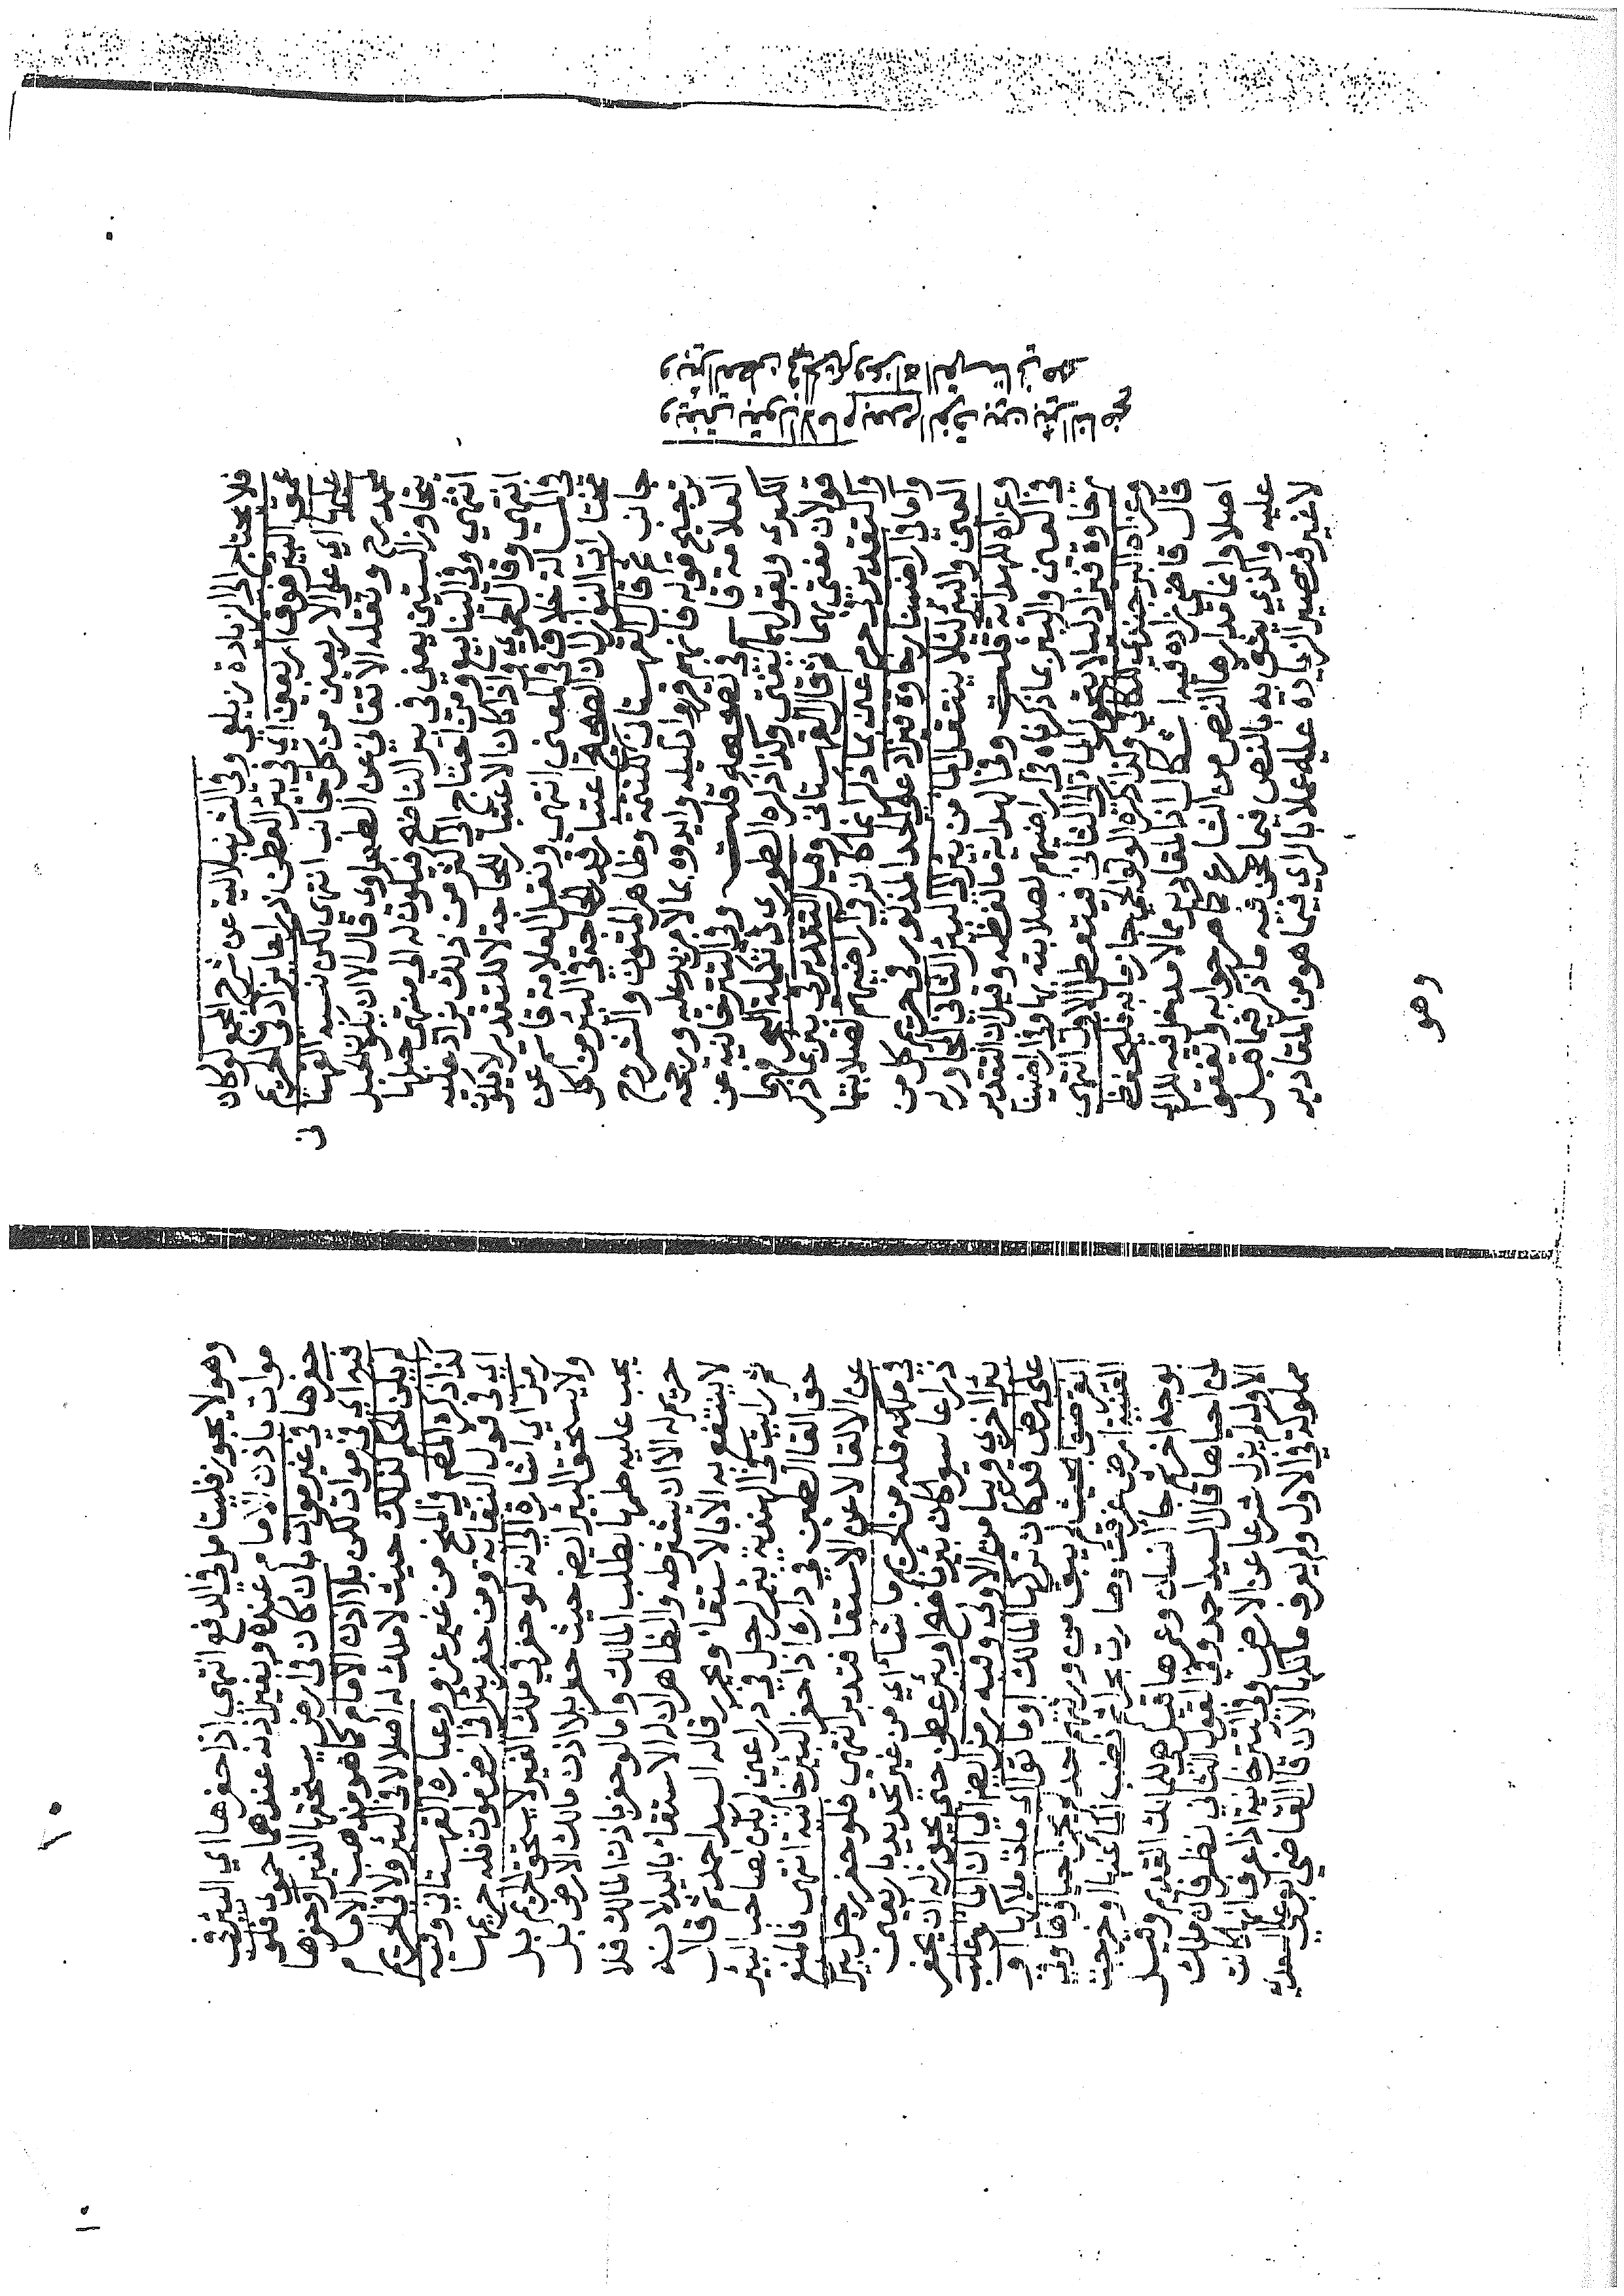 فلا يحتاج الى الزيادة زيلعي وفي الشرنبلالية عن شرح المجمع لو كان
عمق البير فوق اربعين اي في بئر العطن ذراعا يزاد في الحريم
عليها اي على الاربعين من كل جانب انتهى لكن نسبه القهستا
ني
لمحمد رح ونقله الاتقاني عن الطحاوي قال الا ان يكون الحبل
يتجاوز الستين يعني في بير الناضح فيكون له الى منتهى حبلها
انتهى وفي الينابيع ومن احتاج الى اكثر من ذلك يزاد عليه
انتهى وقال الطوري واذا كان الاعتبار للحاجة لا للتقدير لا يكون
في المسالة خلاف في المعنى انتهى ونقل العلامة قاسم عن
مختارات النوازل ان الصحيح اعتبار قدر الحاجة في البئر من كل
جانب ثم قال القهستاني كتتمة وظاهر المتون والشروح
ترجيح قوله فانهم قرروا دليله وايدوه بما لا مزيد عليه ورجحه
العلامة قاسم في تصحيحه قلت وفي التترخانية عن
الكبرى وبقولهما يفتى وكذا ذكره الطوري في تكملة البحر وهما
قولان مفتى بهما ثم قال القهستاني وقيل التقدير في بير بما ذكر
والتقدير في وعين بما ذكر انما كان في اراضيهم لصلابتها
واما في اراضينا رخاوة فيزاد على الحد المذكور في حريم كل من
العين والبئر لئلا ينتقل الماء من بير الى البير الثاني المجاورة
وعزاه للهداية قلت وفي الهداية ما لفظه وقيل ان التقدير
في العين والبئر بما ذكرناه في اراضيهم لصلابته بها وفي اراضينا
رخاوة فيزاد لئلا يتحول الماء الى الثاني فيتعطل الاول انتهى
وعزاه البرجندي للكافي وكذا ذكره جازما به فليحفظ
قال قاضي زاده فيه اشكال اذ المقادير مما لا مدخل فيه للراي
اصلا وانما مدارها النص من الشارع كما هو جوابه ويتفق
عليه والذي يثق به بالنص فيما نحن فيه ما ذكر فيما قبل
لا غير فتصير الزيادة عليه عملا بالراي فيما هو من المقادير
وهو
وهو لا يجوز فليتامل في الدفع انتهى اذا حفرها اي البئر في
موات باذن الامام عنده وبغير اذنه عندهما حموي فلو
حفرها في غير موات بان كان في ارض يستحقها الغير او حفرها
فيه اي في موات لكن بلا اذن الامام كما هو مذهب الامام
لم يكن الحكم كذلك حيث لا ملك له اصلا لا في البئر ولا في الحريم
كذا ذكره المص في المنح من غير عزو وعبارة القهستاني وفيه
اي في قول النقاية ومن حفر بئرا في ارض موات فله حريمها
رمز اي اشارة الى انه لو حفر في ملك الغير لا يستحق الحريم بل
ولا يستحق البئر ايض حيث حفر بلا اذن مالك الارض بل
يجب عليه طمها بطلب المالك واما لو حفر باذن المالك فلا
حريم له الا ان يشترطه والظاهر ان له الاستقاء باليد لانه
لا ينتفع به الا بالاستقاء وبحر قاله السيد احمد ثم قال
ثم رايت في الهندية بئر لرجل في دار غيره لم يكن لصاحب البئر
حق القاء الطين في داره اذا حفر البئر خانية انتهى فالمنع
عن الالقاء لا عن الاستقاء فتدبر انتهى فلو حفر رجل بئرا
في ملكه فله من الحريم ما شاء اي من غير تحديد باربعين
ذراعا سوا كان بئر ناضح او بئر عطن حتى يحل له ان يحفر
بئرا اخرى قريبا من الاولى وفيه رمز ايض الى ان الماء لو غلب
على ارض قد كان تركها الملاك او ماتوا اي ملاكها او
انقرضوا بحيث لم يبق من ورثتهم احد لم يجز احياوها وفي
القنية ارض غرقت وصارت بحرا ثم نضب الماء عنها او خربت
بوجه اخر ثم جاء انسان وعمرها قيل هي للمالك القديم وقيل
لمن احياها قال السيد احمد وفي القول الثاني نظر فان ملك
الاول لم يزل شرعا عن الارض وفي التترخانية اذا عرف انها كانت
مملوكة في الاول ولم يعرف مالكها الان قال القاضي ابو علي السغدي